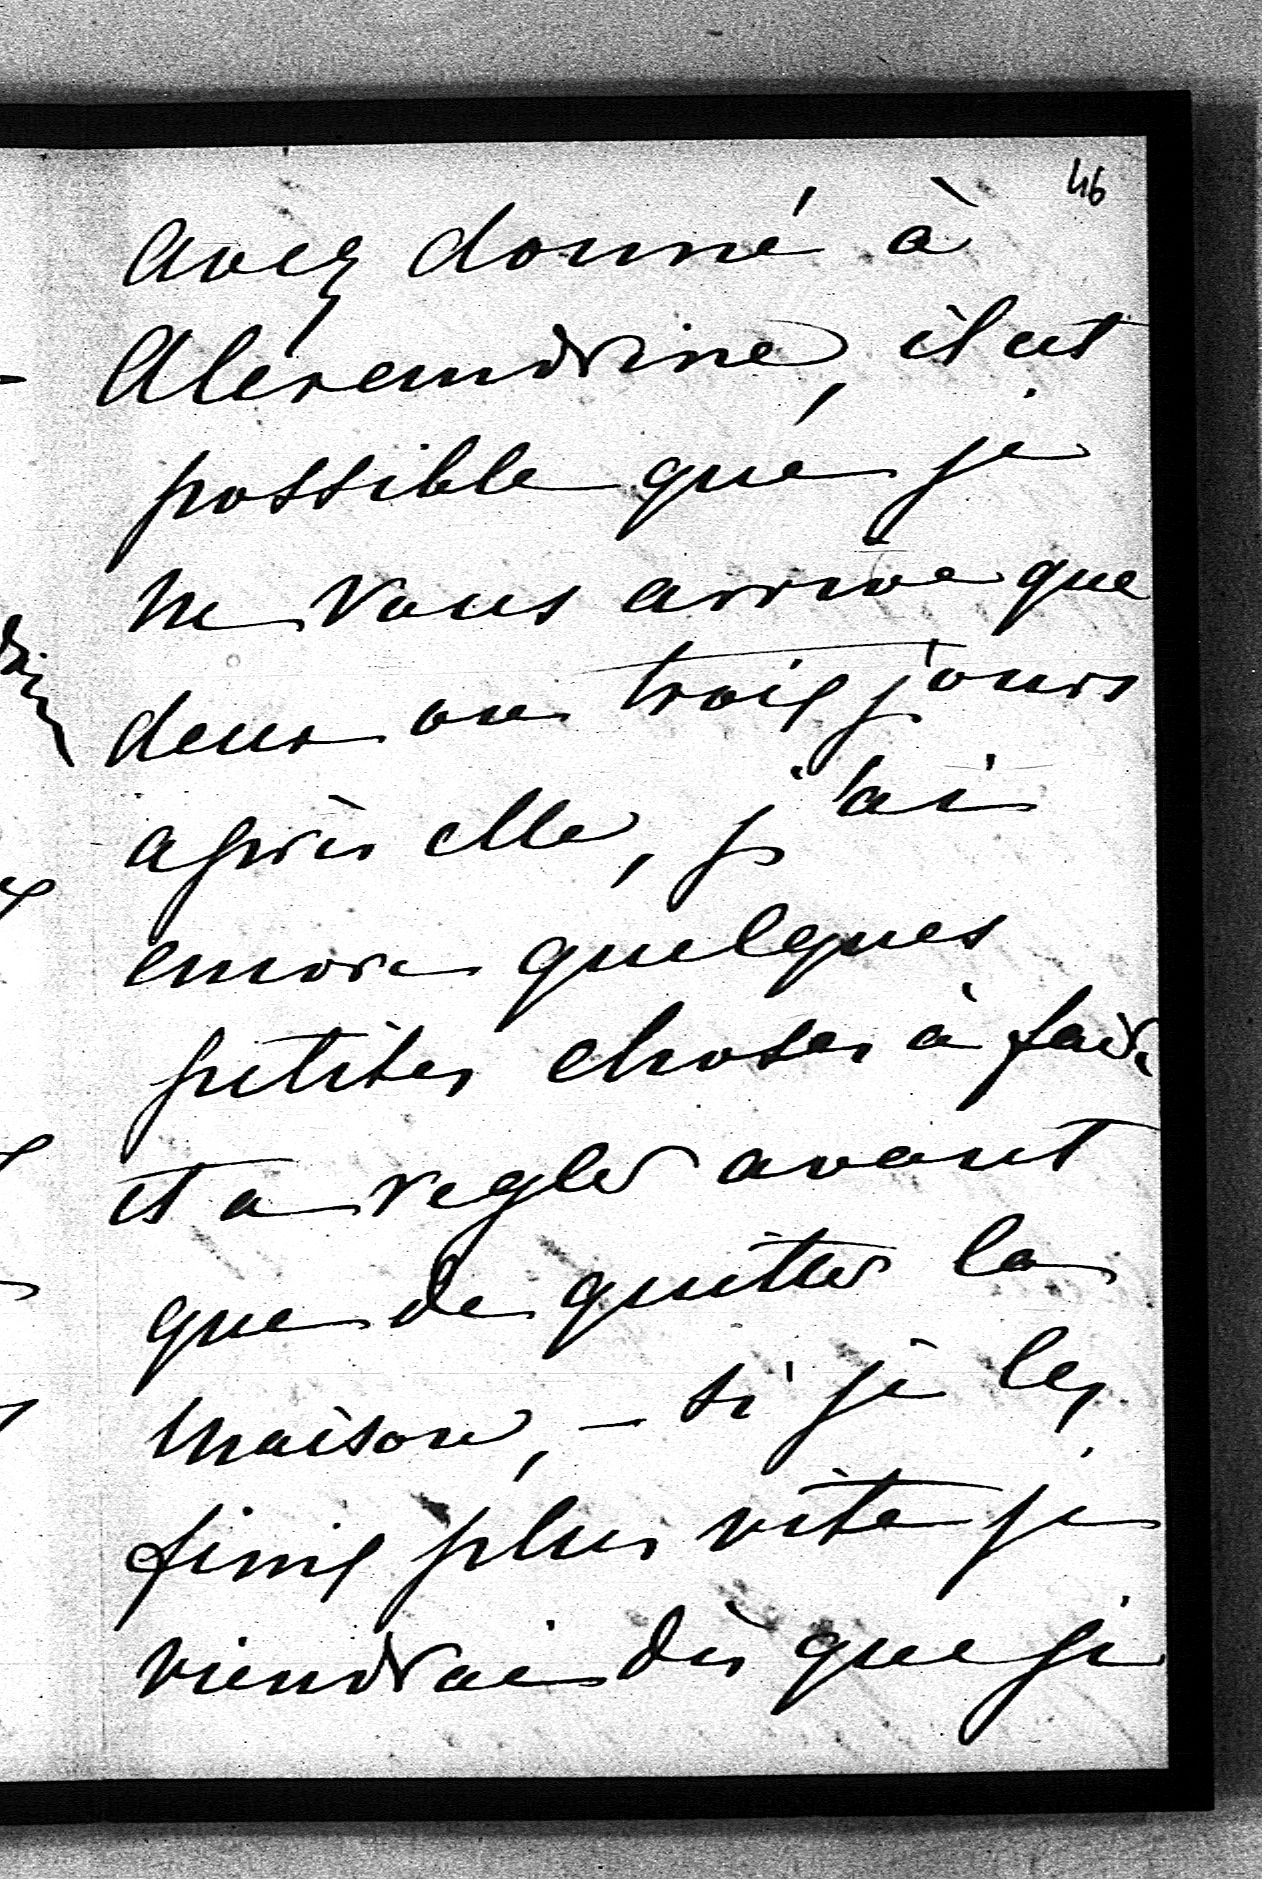 46
avez donné à
Alexandrine, il est
possible que je
ne vous arrive que
deux ou trois jours
après elle, j'ai
encore quelques
petites choses à faire
et a regler avant
que de quitter la
maison, – si je les
finis plus vite je
viendrai dès que je